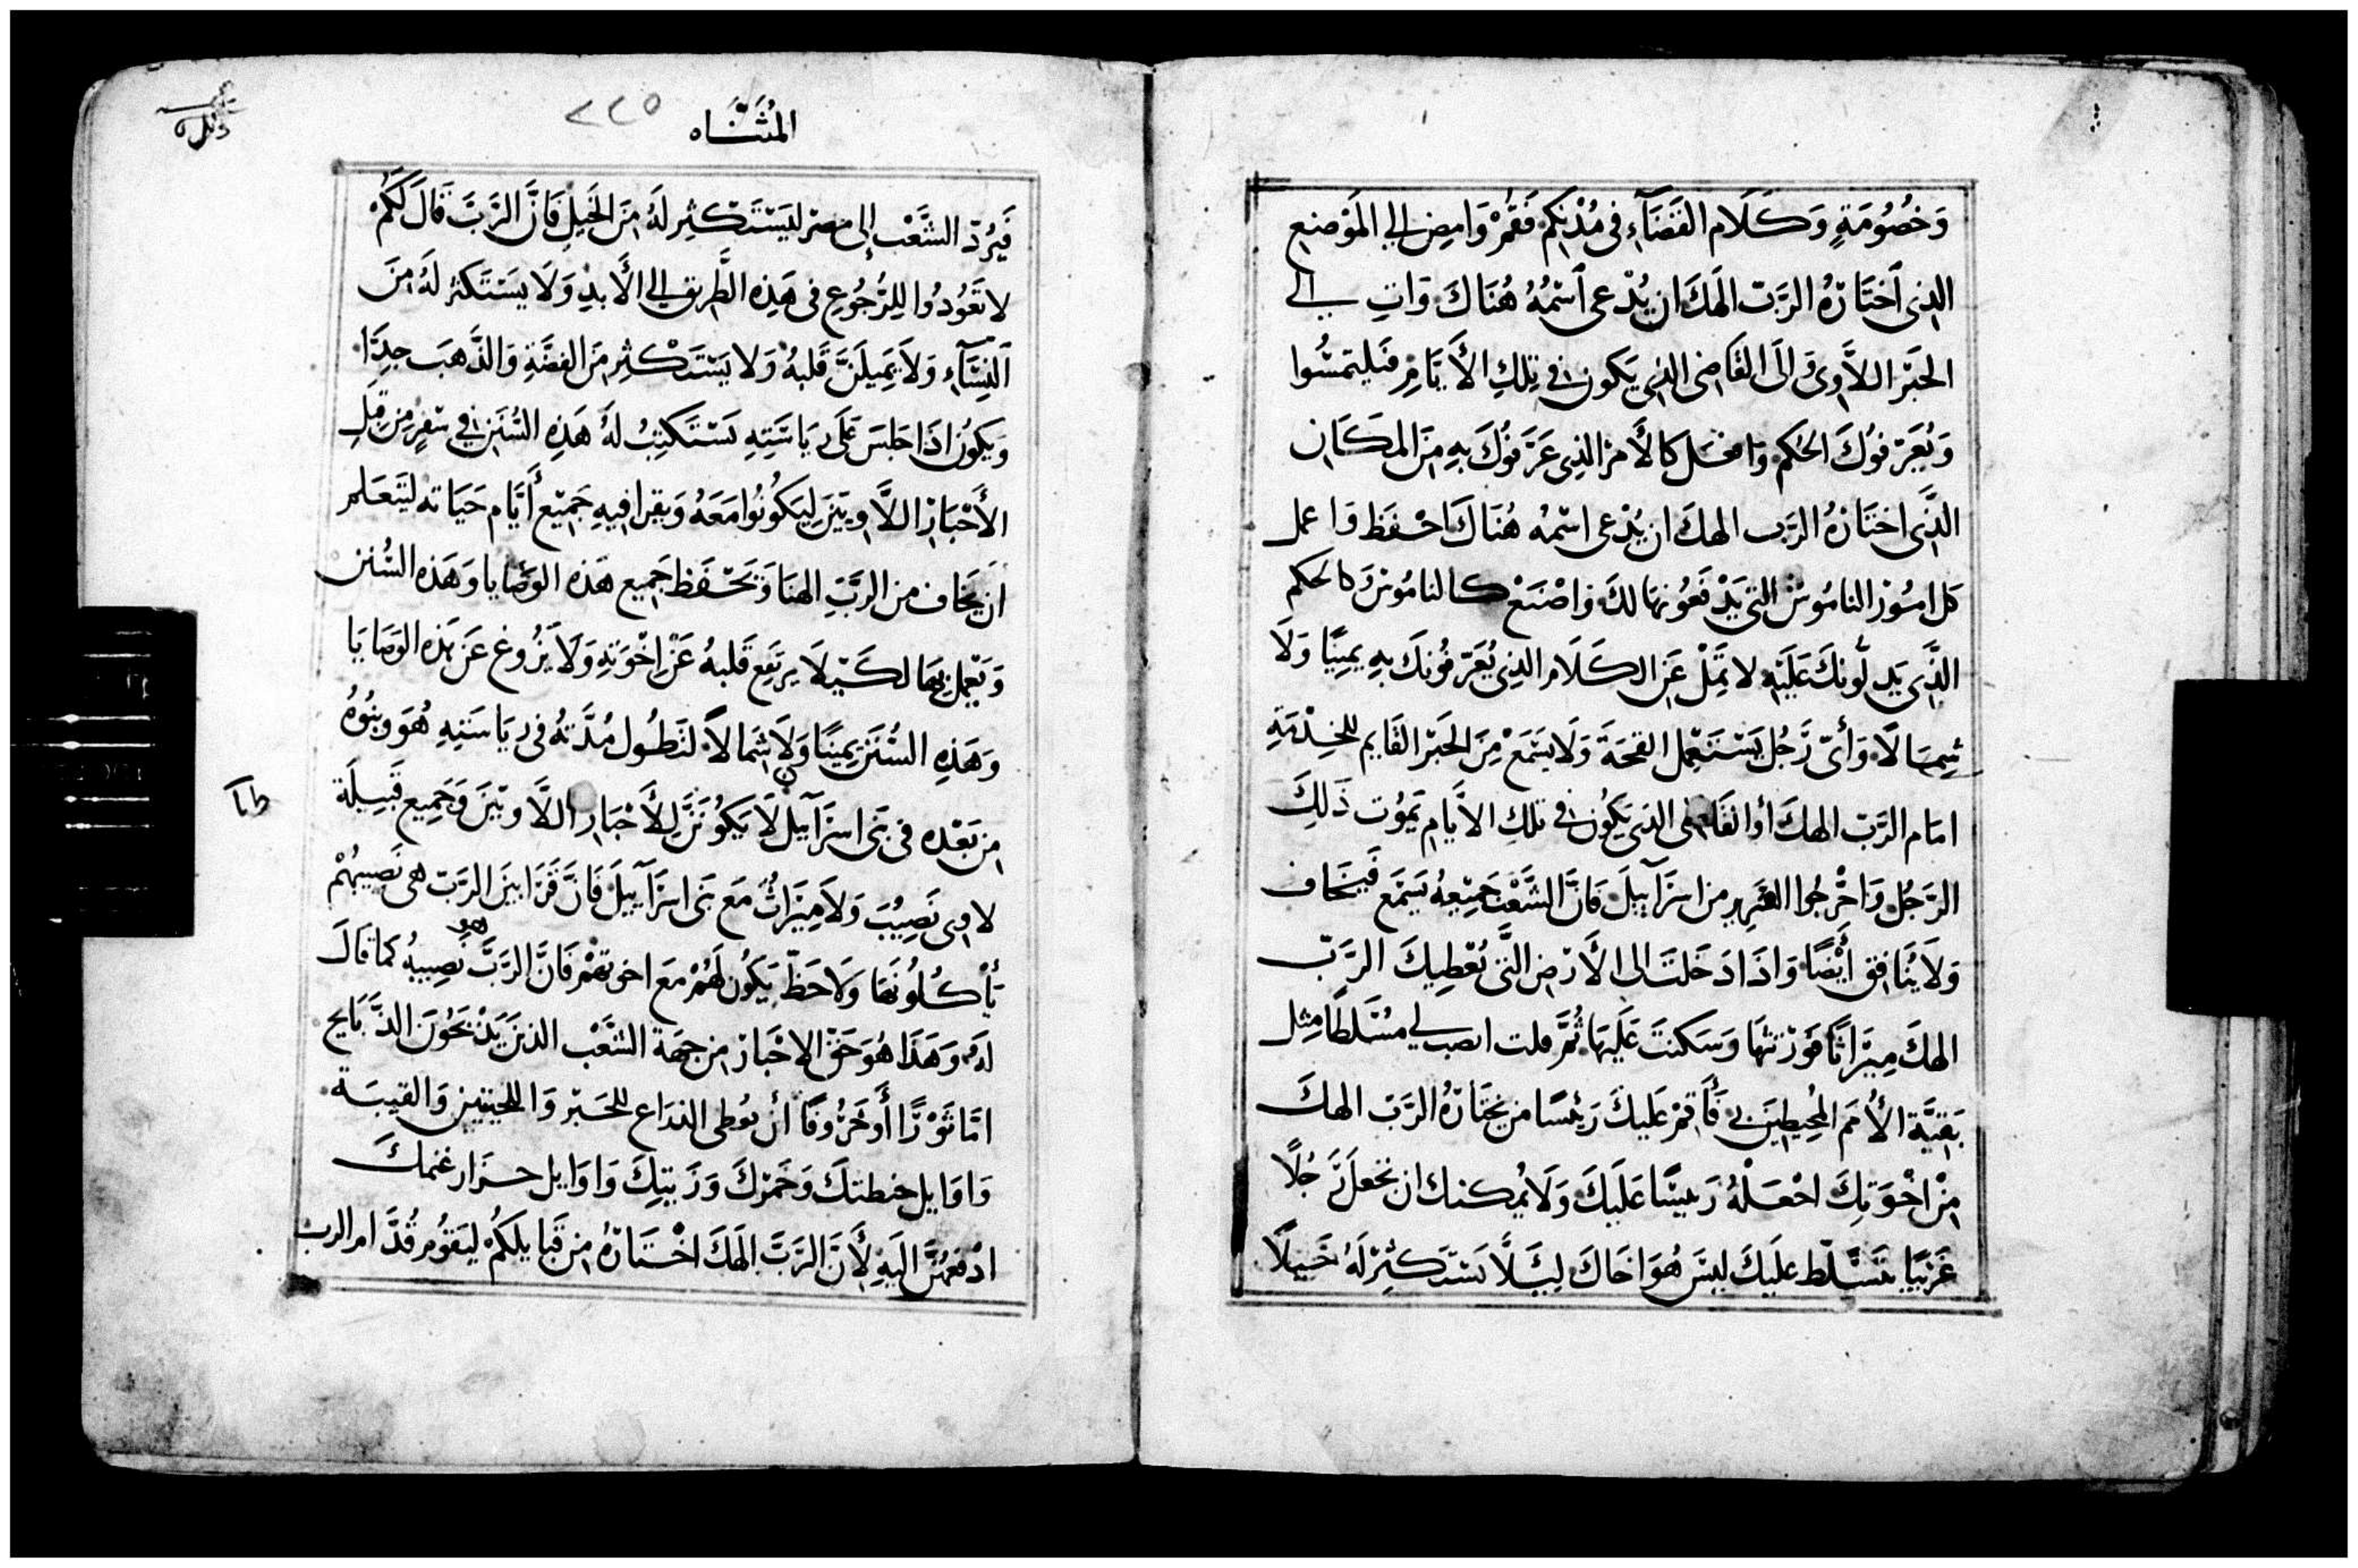 وَخُصُومَةٍ وَكَلَام القَضَآءِ فى مُدْنِكم فَقُمْ وَامضِ الي المَوْضع
الذى ٱخْتَارَهُ الرَبّ الَهكَ ان يُدْعى ٱسْمُهُ هُنَاكَ وَاتِ الي
الحَبْر اللاَّوِى وَالَى القَاضى الذى يَكون فى تلكِ الأَيَّامِ فيَلتمسُوا
وَيُعَرّفوُكَ الحُكم وَافعَل كالأَمر الذِى عَرَّفوُكَ بِهِ مِنَ المكَان
الذَّى اختَارَهُ الرَب الهكَ ان يُدْعى اسْمُه هُنَاكَ احْفَظ وَاعمل
كل امُور النامُوسْ التى يَدْفَعُونهَا لكَ وَاصْنَعْ كالنامُوسْ وَكالحكم
الذَّى يَدلُّونَكَ عَلَيْهِ لا تَمِلْ عَن الكَلَام الذِى يُعَرّفوُنكَ بِهِ يمينًا وَلَا
شِمَالًا وَأىّ رَجُل يَسْتَعْمِل القحَة وَلا يسَمَعْ مِنَ الحَبْر القَايم للخِدْمَةِ
امَام الرَّبّ الهكَ أو القَاضى الذى يَكُون فى تلكِ الأيَام يَمُوت ذَلِكَ
الرَجُل وَاخْرجُوا الشرير من اسرَآييلَ فَانَّ الشَّعْب جَمِيعهُ يَسمَع فيَخَاف
وَلَا يُنَافِق أَيْضًا وَاذَا دَخَلتَ الى الأَرْض التَّى يُعْطِيكَ الرَبّ
الهكَ مِيرَاثًا فوَرَثتهَا وَسَكنتَ عَلَيهَا ثُمَّ قلت انصب لى مسَلّطًا مثل
بَقيَّة الأُمَم المُحِيطِينَ بى فَأَقِمْ عَليكَ رَئِيسًا من يختَارُهُ الرَبّ الهكَ
مِنْ اخْوَتِكَ اجْعَلْهُ رَئيسًا عَلَيكَ وَلَا يُمكنك ان تجعَل رَجُلًا
غَرِيبًا يتسَّلّط عليَكَ ليسَ هُوَ اخَاكَ لِيَلَّا يَستَكثِرْ لَهُ خَيلًا
المُثَنَّاه
٢٢٥
فَيَرُدّ الشَّعْب إلى مصرْ ليَسْتَكْثِر لَهُ مِنَ الخَيلِ فَانَّ الرَبَّ قَالَ لَكُمْ
لا تَعُودُوا للِرُجُوُعِ فى هَذِه الطَّرِيق الي الأَبدِ وَلَا يسَتَكثر لَهُ مِنَ
النِسَآءِ وَلَا يَمِيلَنَّ قَلبهُ وَلا يستَكْثِر مِنَ الفضَّةِ وَالذَّهبَ جِدًّا
وَيَكُون اذَا جَلسَ عَلَى رِيَاسَتِهِ يَسْتَكتِبُ لهُ هَذِهِ السُّنَن فى سفْر مِن قبلِ
الأَحْبَار اللَّاوِيّيَن ليَكُونُوا مَعَهُ وَيقرا فيهِ جَمِيْع أَيَّام حَيَاته ليَتعَلم
ان يخَاف من الرَبّ الهنَا وَيَحْفَظ جَمِيع هَذه الوَصَايا وَهَذه السُّنن
وَيَعْمل بهَا لكَيْلَا يرتَفِع قَلبهُ عَنْ اِخْوَتِهِ وَلَا يَزُوغ عَن هَذه الوَصَايَا
وَهَذِهِ السُّنَن يمينًا وَلَا شِمالاً لتَطُول مُدَّتهُ فى ريَاسَتِهِ هُوَ وبنُوهُ
من بَعْده فى بَنى اسرَآييل لَا يَكوُننَّ لِلأَحْبَار اللَّاويّيَن وَجَمِيع قَبيلَة
لاوى نَصِيْبَ وَلَا مِيَراثٌ مَع بَنى اسرَآييلَ فَانَّ قَرَابينَ الرَبّ هى نَصيبهُمْ
يَأْكُلُونَهَا وَلَا حَظّ يَكُون لَهُمْ مَع اخوتهمْ فَانَّ الرَبَّ هو نَصِيبهُ كمَا قالَ
لهُ وَهَذَا هُوَ حَقّ الاحْبَار من جهَة الشَّعْب الذينَ يَذْبَحُونَ الذَّبَايح
امَّا ثَوْرًا أَو خَرُوفًا أن يُعْطى الذرَاع للحَبْر وَاللحيتين وَالقيبَة
وَاوَايل حنطتكَ وَخَمْركَ وَزَيتكِ وَاوَايل جزَار غنمكَ
ادْفعهُنَّ اليَهِ لأَنَّ الرَبَّ الهَكَ اخْتَارَهُ مِن قَبايلكُمْ ليَقُوم قُدَّام الرب